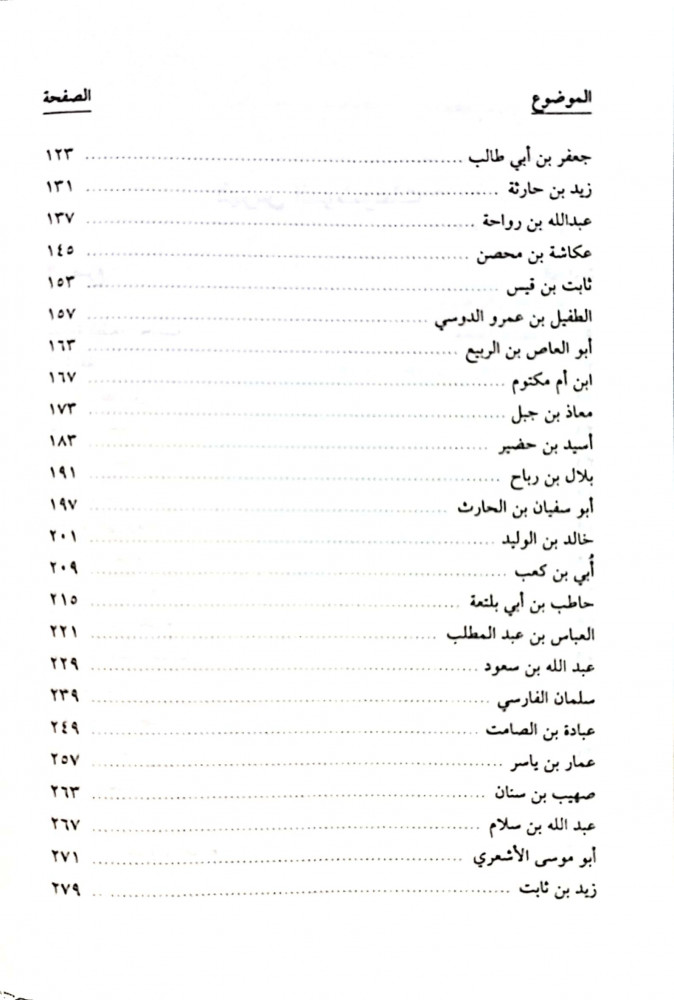 الموضوع الصفحة
جعفر بن أبي طالب ١٢٣
زيد بن حارثة ١٣١
عبدالله بن رواحة ١٣٧
عكاشة بن محصن ١٤٥
ثابت بن قيس ١٥٣
الطفيل بن عمرو الدوسي ١٥٧
أبو العاص بن الربيع ١٦٣
ابن أم مكتوم ١٦٧
معاذ بن جبل ١٧٣
أسيد بن حضير ١٨٣
بلال بن رباح ١٩١
أبو سفيان بن الحارث ١٩٧
خالد بن الوليد ٢٠١
أُبي بن كعب ٢٠٩
حاطب بن أبي بلتعة ٢١٥
العباس بن عبد المطلب ٢٢١
عبد الله بن سعود ٢٢٩
سلمان الفارسي ٢٣٩
عبادة بن الصامت ٢٤٩
عمار بن ياسر ٢٥٧
صهيب بن سنان ٢٦٣
عبد الله بن سلام ٢٦٧
أبو موسى الأشعري ٢٧١
زيد بن ثابت ٢٧٩